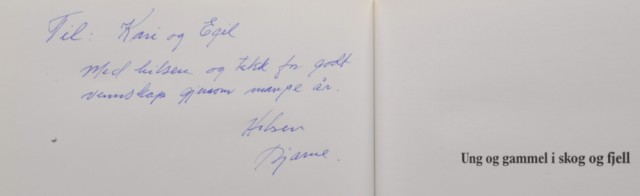 Til: Kari og Egil
Med hilsen og takk for godt
vennskap gjennom mange år.
Hilsen
Bjarne.
Ung og gammel i skog og fjell